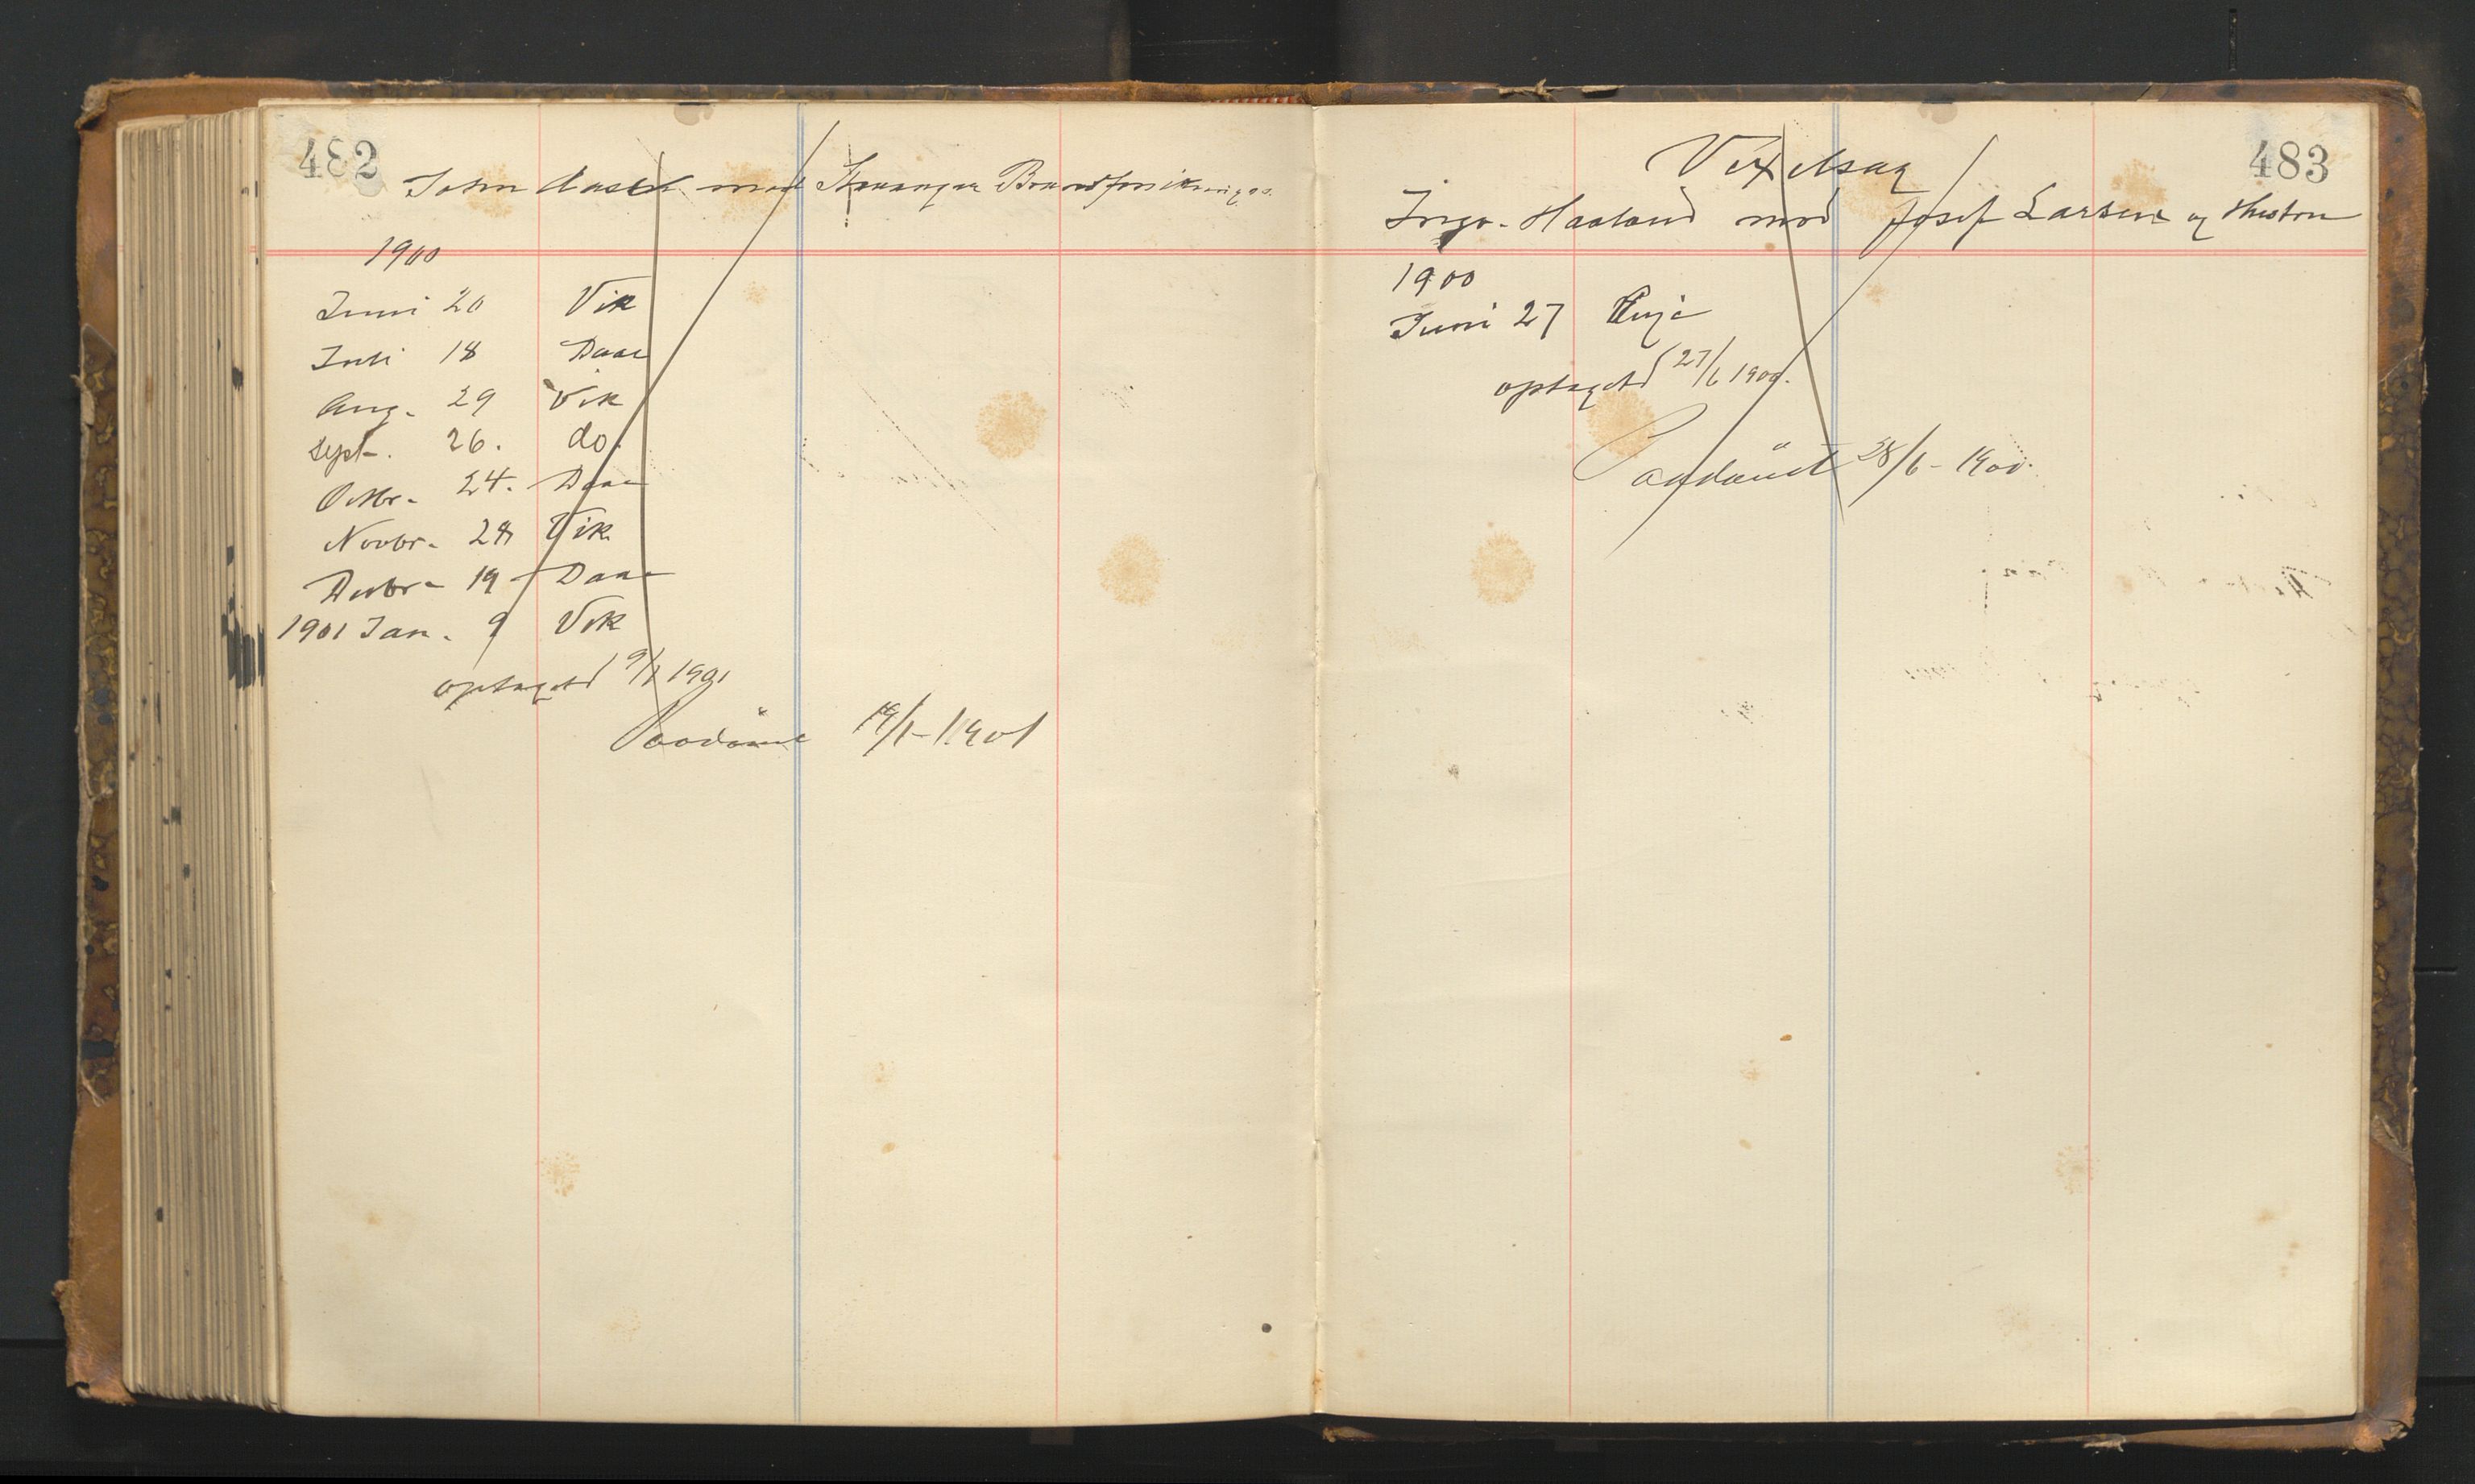 482
John Aasen mod Stavanger Brandforsikringss.
1900
Juni 20 Vik
Juli 18 Daae
Aug. 29 Vik
Sept. 26. do.
Octbr. 24. Daae
Novbr. 28 Vik
Decbr. 19 Daae
1901 Jan. 9 Vik
optaget 9/1 1901
Paadömt 19/1-1901
483
Vexelsag
Haaland mod Josef Larsen og Hustru
1900
Juni 27
optaget 27/6 1900.
Paadömt 28/6-1900.